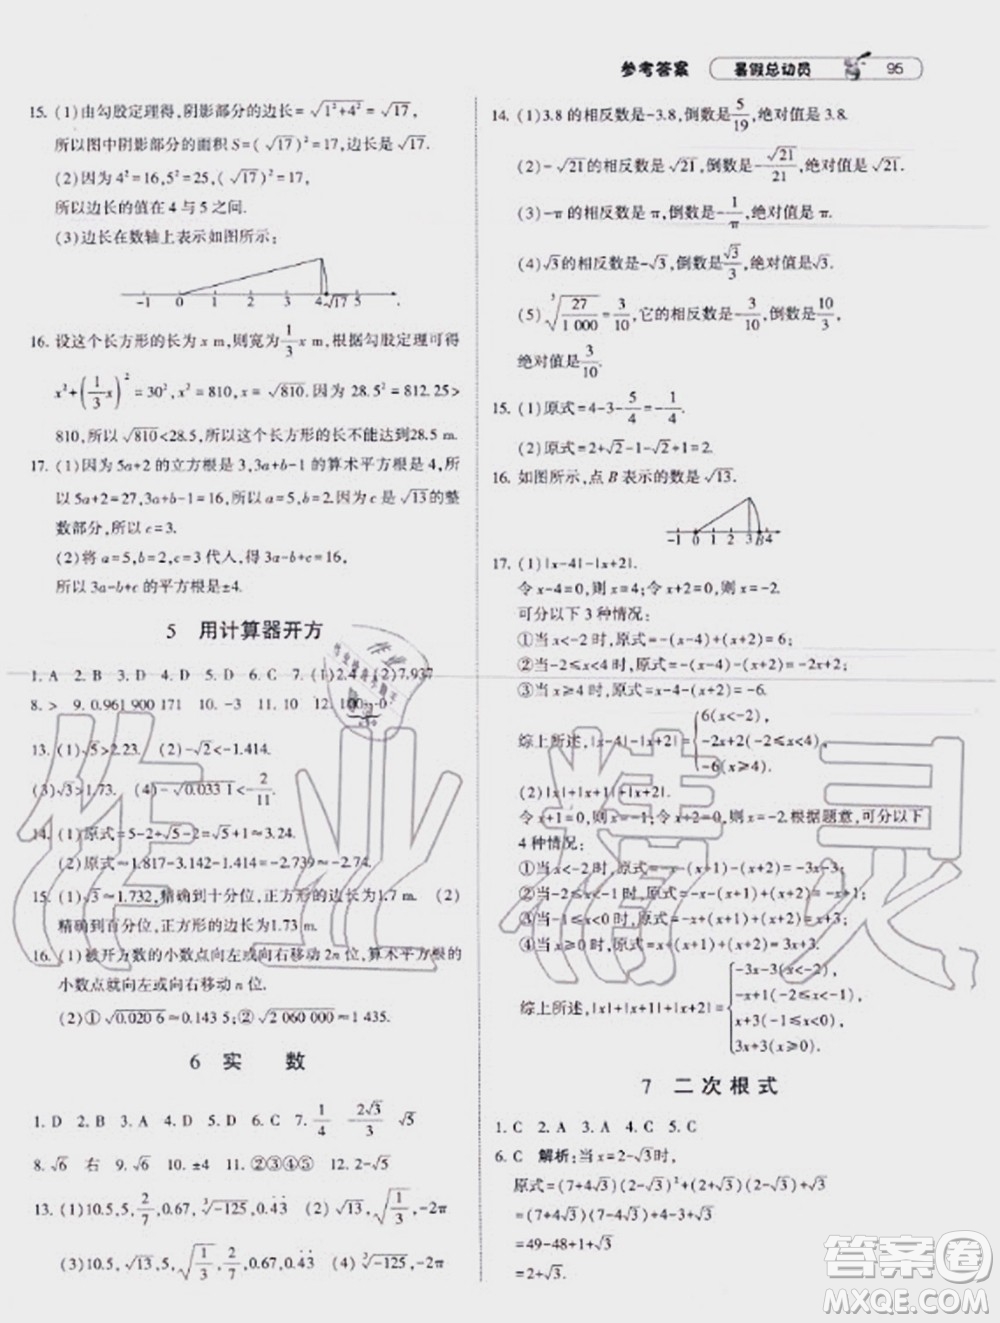 参考答案 暑假总动员 95
15. (1)由勾股定理得,阴影部分的边长=√(1²+4²)=√17,
所以图中阴影部分的面积 S=(√17)²=17.
(2)因为4²=16,5²=25,(√17)²=17,
所以边长的值在 4 与 5 之间.
(3)边长在数轴上表示如图所示;
-1 0 1 2 3 4 √17 5
16. 设这个长方形的长为 x m,则宽为1/3 x m,根据勾股定理可得
x²+(1/3 x)²=30²,x²=810,x=√810.因为 28.5²=812.25>
810,所以√810<28.5,所以这个长方形的长不能达到28.5 m.
17. (1)因为 5a+2 的立方根是 3,3a+b-1 的算术平方根是 4,所
以 5a+2=27,3a+b-1=16,所以 a=5,b=2.因为 c 是√13的整
数部分,所以 c=3.
(2)将 a=5,b=2,c=3 代人,得 3a-b+c=16.
所以 3a-b+c 的平方根是±4.
5 用计算器开方
1. A 2. B 3. A 4. D 5. D 6. B 7. (1)2.4 (2)7.937
8. > 9. 0.961 900 171 10. -3 11. 10
13. (1)√5>2.23. (2)-√2<-1.414.
(3)√3>1.73. (4)-√0.033 1<-2/11.
14. (1)原式=5-2+√5-2=√5+1.
(2)原式≈1.817-3.142-1.414=-2.739≈-2.74.
15. (1)√3≈1.732,精确到十分位,正方形的边长为1.7 m. (2)
精确到百分位,正方形的边长为1.73 m.
16. (1)被开方数的小数点向左或向右移动 2n 位,算术平方根
的小数点就向左或向右移动 n 位.
(2)①√0.020 6≈0.143 5;②√2 060 000≈1 435.
6 实 数
1. D 2. B 3. A 4. D 5. D 6. D 7. 1/4 2√3/3 √5
8. √6 右 9. √6 10. ±√2 11. ②③④⑤ 12. 2-√5
13. (1)10.5,5,2/7,0.67,∛-125,0.4̇3̇ (2)√13,√(1/3),-2π
(3)10.5,5,√13,√(1/3),2/7,0.67,0.4̇3̇ (4)∛-125,-2π
14. (1)3.8 的相反数是-3.8,倒数是5/19,绝对值是 3.8.
(2)-√21的相反数是√21,倒数是-√21/21,绝对值是√21.
(3)-π 的相反数是 π,倒数是-1/π,绝对值是 π.
(4)√3的相反数是-√3,倒数是√3/3,绝对值是√3.
(5)∛(27/1 000)=3/10,它的相反数是-3/10,倒数是10/3,
绝对值是3/10.
15. (1)原式=4-3-5/4=-1/4.
(2)原式=2+√2-1-√2+1=2.
16. 如图所示,点 B 表示的数是√13.
-1 0 1 2 3 B 4
17. (1)|x-4|-|x+2|.
令 x-4=0,则 x=4;令 x+2=0,则 x=-2.
可分以下 3 种情况:
①当 x<-2 时,原式=4-x+x+2=6;
②当-2≤x<4 时,原式=4-x-x-2=-2x+2;
③当 x≥4 时,原式=x-4-x-2=-6.
综上所述,|x-4|-|x+2|={6(x<-2),
-2x+2(-2≤x<4),
-6(x≥4).
(2)|x|+|x+1|+|x+2|.
令 x+1=0,则 x=-1;令 x+2=0,则 x=-2.根据题意,可分以下
4 种情况:
①当 x<-2 时,原式=-x-(x+1)-(x+2)=-3x-3;
②当-2≤x<-1 时,原式=-x-(x+1)+(x+2)=-x+1;
③当-1≤x<0 时,原式=-x+(x+1)+(x+2)=x+3;
④当 x≥0 时,原式=x+(x+1)+(x+2)=3x+3.
综上所述,|x|+|x+1|+|x+2|={-3x-3(x<-2),
-x+1(-2≤x<-1),
x+3(-1≤x<0),
3x+3(x≥0).
7 二次根式
1. C 2. A 3. A 4. C 5. C
6. C 解析:当 x=2-√3时,
原式=(7+4√3)(2-√3)²+(2+√3)(2-√3)+√3
=(7+4√3)(7-4√3)+(4-3)+√3
=49-48+1+√3
=2+√3.
作业精灵
答案圈
MXQE.COM